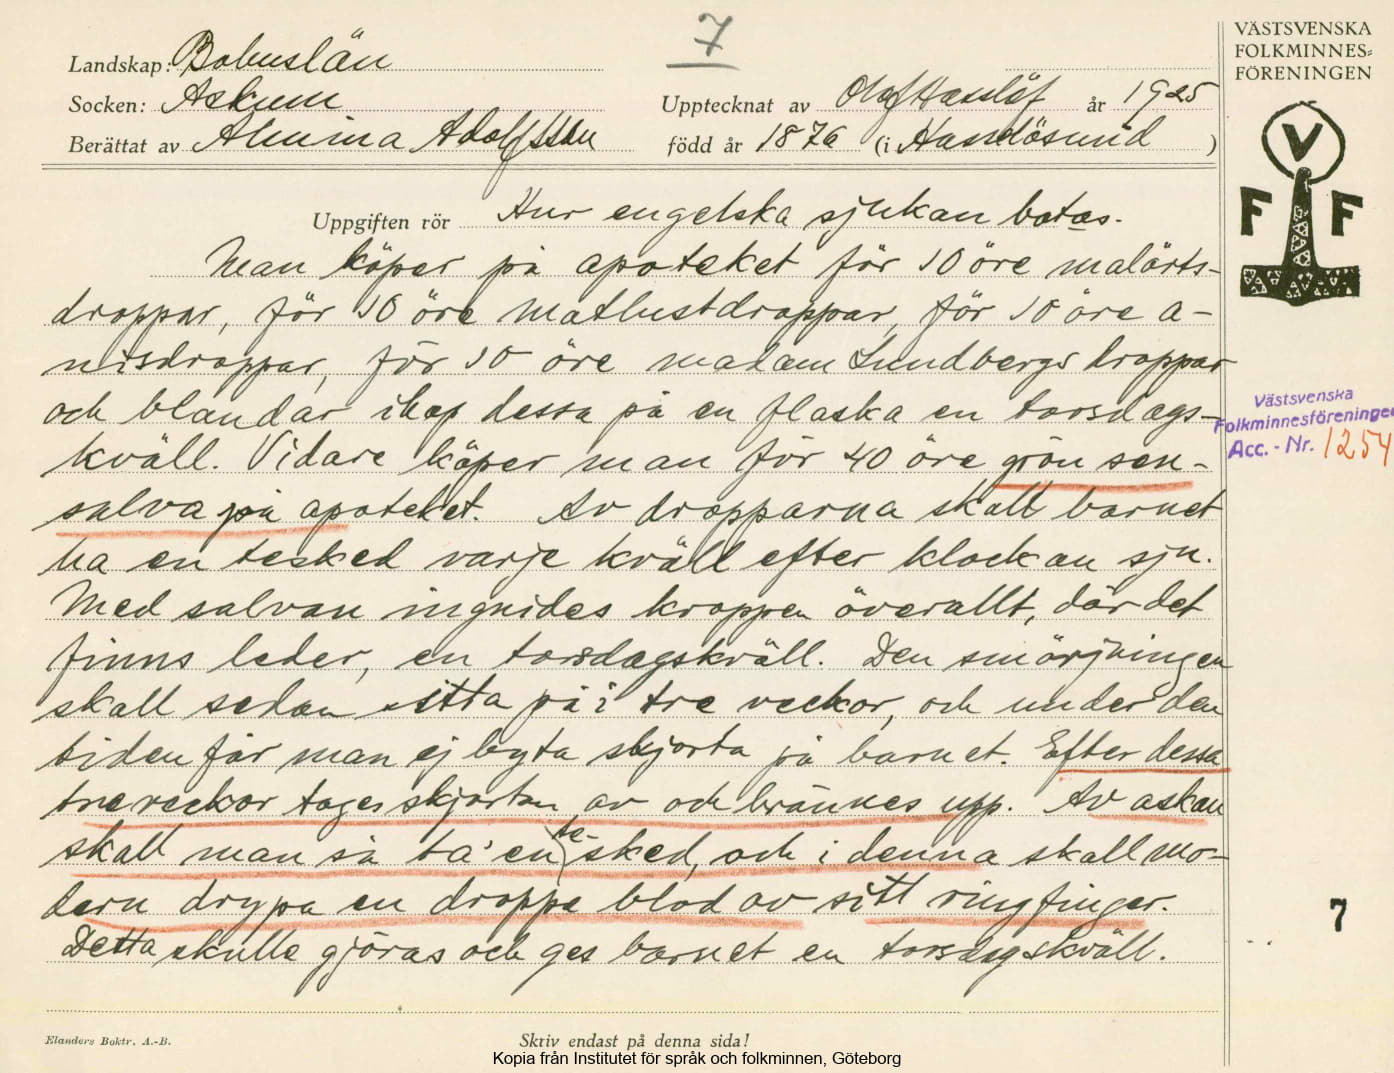 7
VÄSTSVENSKA
FOLKMINNES=
FÖRENINGEN
Landskap: Bohuslän
Socken: Askum
Upptecknat av Olof Hasslöf år 1925
Berättat av Almina Adolfsson född år 1876 (i Hasselösund)
V
F F
Uppgiften rör Hur engelska sjukan botas.
Man köper på apoteket för 10 öre malörts-
droppar, för 10 öre matlustdroppar, för 10 öre a-
nisdroppar, för 10 öre madam Lundbergs droppar
och blandar ihop dessa på en flaska en torsdags-
kväll. Vidare köper man för 40 öre grön sen-
salva på apoteket. Av dropparna skall barnet
ha en tesked varje kväll efter klockan sju.
Med salvan ingnides kroppen överallt, där det
finns leder, en torsdagskväll. Den smörjningen
skall sedan sitta på i tre veckor, och under den
tiden får man ej byta skjorta på barnet. Efter dessa
tre veckor tages skjortan av och brännes upp. Av askan
skall man så ta' en te-sked, och i denna skall mo-
dern drypa en droppe blod av sitt ringfinger.
Detta skulle göras och ges barnet en torsdagskväll.
Västsvenska
Folkminnesföreningen
Acc. - Nr. 1254
7
Elanders Boktr. A.-B.
Skriv endast på denna sida!
Kopia från Institutet för språk och folkminnen, Göteborg